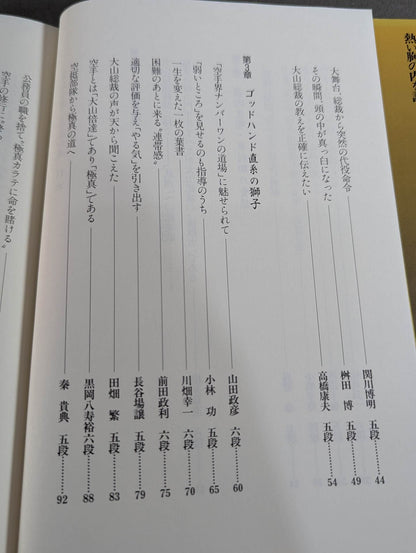 熱い胸の内を
大舞台、総裁から突然の代役命令――関川博明 五段……44
その瞬間、頭の中が真っ白になった――桝田 博 五段……49
大山総裁の教えを正確に伝えたい――高橋康夫 五段……54
第3章 ゴッドハンド直系の獅子
「空手界ナンバーワンの道場」に魅せられて――山田政彦 六段……60
「弱いところ」を見せるのも指導のうち――小林 功 五段……65
一生を変えた一枚の葉書――川畑幸一 六段……70
困難のあとに来る“連帯感”――前田政利 六段……75
適切な評価を与え「やる気」を引き出す――長谷場譲 五段……79
大山総裁の声が天から聞こえた――田畑 繁 五段……83
空手とは「大山倍達」であり「極真」である――黒岡八寿裕 六段……88
空挺部隊から極真の道へ――秦 貴典 五段……92
公務員の職を捨て“極真カラテに命を賭ける”
空手の修行に